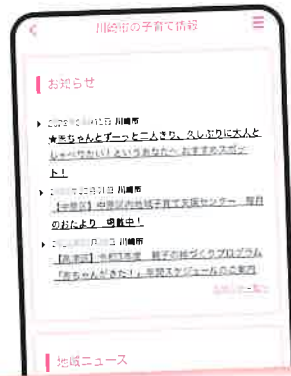 川崎市の子育て情報
お知らせ
川崎市
★赤ちゃんとずーっと二人きり、久しぶりに大人と
しゃべりたい!というあなたへ おすすめスポッ
ト!
川崎市
【中原区】中原区内地域子育て支援センター 毎月
のおたより 掲載中!
川崎市
【高津区】令和5年度 親子の絆づくりプログラム
「赤ちゃんがきた!」年間スケジュールのご案内
地域ニュース